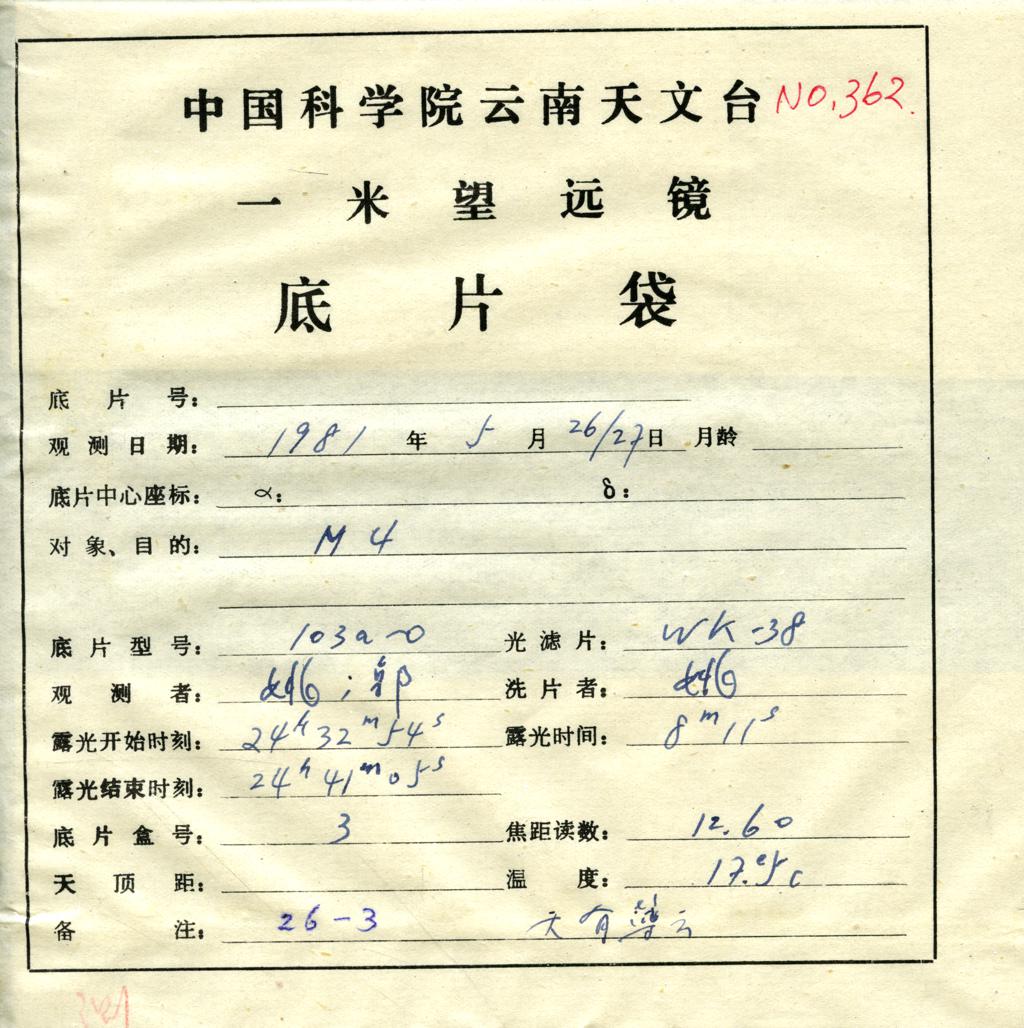 中国科学院云南天文台 NO.362.
一米望远镜
底片袋
底片号：
观测日期： 1981 年 5 月 26/27 日 月龄
底片中心座标： α： δ：
对象、目的： M 4
底片型号： 103a-O 光滤片： WK-38
观测者： ；郭 洗片者：
露光开始时刻： 24h 32m 54s 露光时间： 8m 11s
露光结束时刻： 24h 41m 05s
底片盒号： 3 焦距读数： 12.60
天顶距： 温度： 17.°5c
备注： 26-3 天有 云